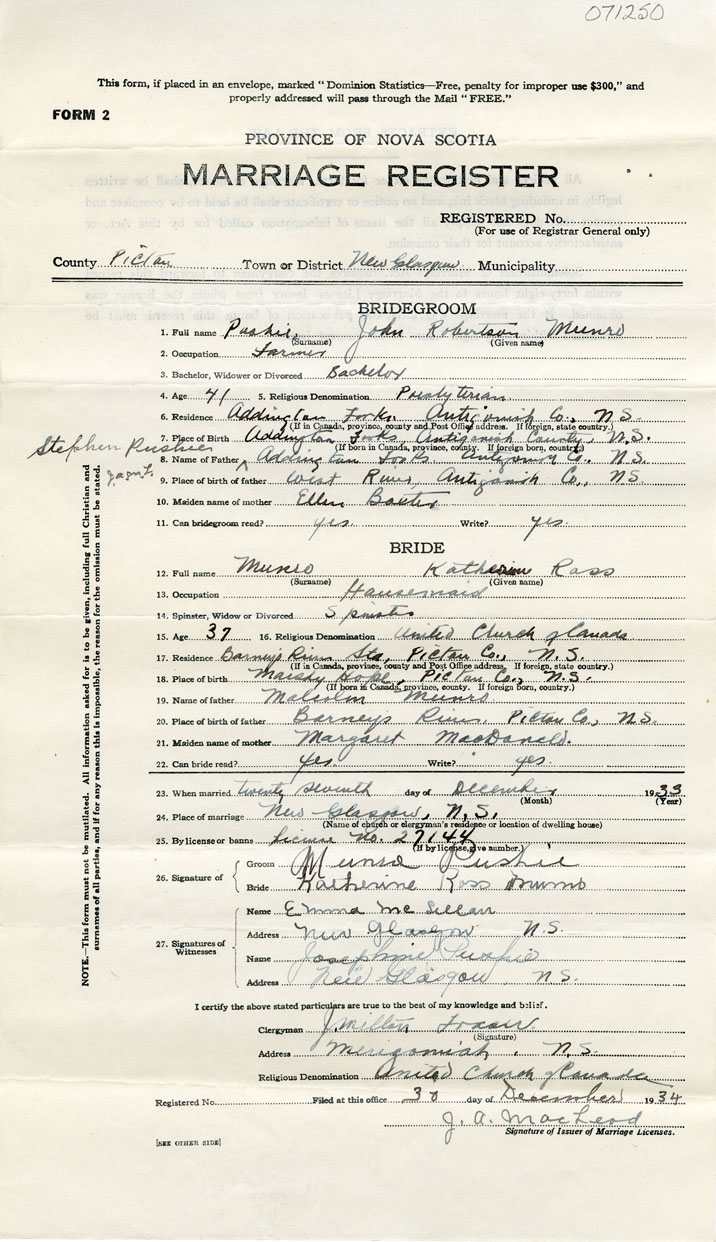 071250
This form, if placed in an envelope, marked "Dominion Statistics—Free, penalty for improper use $300," and
properly addressed will pass through the Mail "FREE."
FORM 2
PROVINCE OF NOVA SCOTIA
MARRIAGE REGISTER
REGISTERED No.
(For use of Registrar General only)
County Pictou Town or District New Glasgow Municipality
BRIDEGROOM
1. Full name Pushie, John Robertson Munro
(Surname) (Given name)
2. Occupation Farmer
3. Bachelor, Widower or Divorced Bachelor
4. Age 41 5. Religious Denomination Presbyterian
6. Residence Addington Forks Antigonish Co., N.S.
(If in Canada, province, county and Post Office address. If foreign, state country.)
7. Place of Birth Addington Forks Antigonish County, N.S.
(If born in Canada, province, county. If foreign born, country)
Stephen Pushie
8. Name of Father Addington Forks Antigonish Co., N.S.
9. Place of birth of father West River, Antigonish Co., NS
10. Maiden name of mother Ellen Baxter
11. Can bridegroom read? yes. Write? yes.
BRIDE
12. Full name Munro Katherine Ross
(Surname) (Given name)
13. Occupation Housemaid
14. Spinster, Widow or Divorced Spinster
15. Age 37 16. Religious Denomination United Church of Canada
17. Residence Barneys River Sta, Pictou Co., N.S.
(If in Canada, province, county and Post Office address. If foreign, state country.)
18. Place of birth Marshy Hope, Pictou Co., N.S.
(If born in Canada, province, county. If foreign born, country.)
19. Name of father Malcolm Munro
20. Place of birth of father Barneys River, Pictou Co., N.S.
21. Maiden name of mother Margaret MacDonald.
22. Can bride read? yes. Write? yes.
23. When married twenty seventh day of December 1933
(Month) (Year)
24. Place of marriage New Glasgow, N.S.
(Name of church or clergyman's residence or location of dwelling house)
25. By license or banns License No. 27144
(If by license, give number.)
26. Signature of
Groom Munro Pushie
Bride Katherine Ross Munro
27. Signatures of Witnesses
Name Emma
Address New Glasgow N.S.
Name Josephine Pushie
Address New Glasgow N.S.
I certify the above stated particulars are true to the best of my knowledge and belief.
Clergyman J. Milton Fraser
(Signature)
Address Merigomish, N.S.
Religious Denomination United Church of Canada
Registered No. Filed at this office 30 day of December 1934
J. A. MacLeod
Signature of Issuer of Marriage Licenses.
[SEE OTHER SIDE]
NOTE.—This form must not be mutilated. All information asked for is to be given, including full Christian and
surnames of all parties, and if for any reason this is impossible, the reason for the omission must be stated.